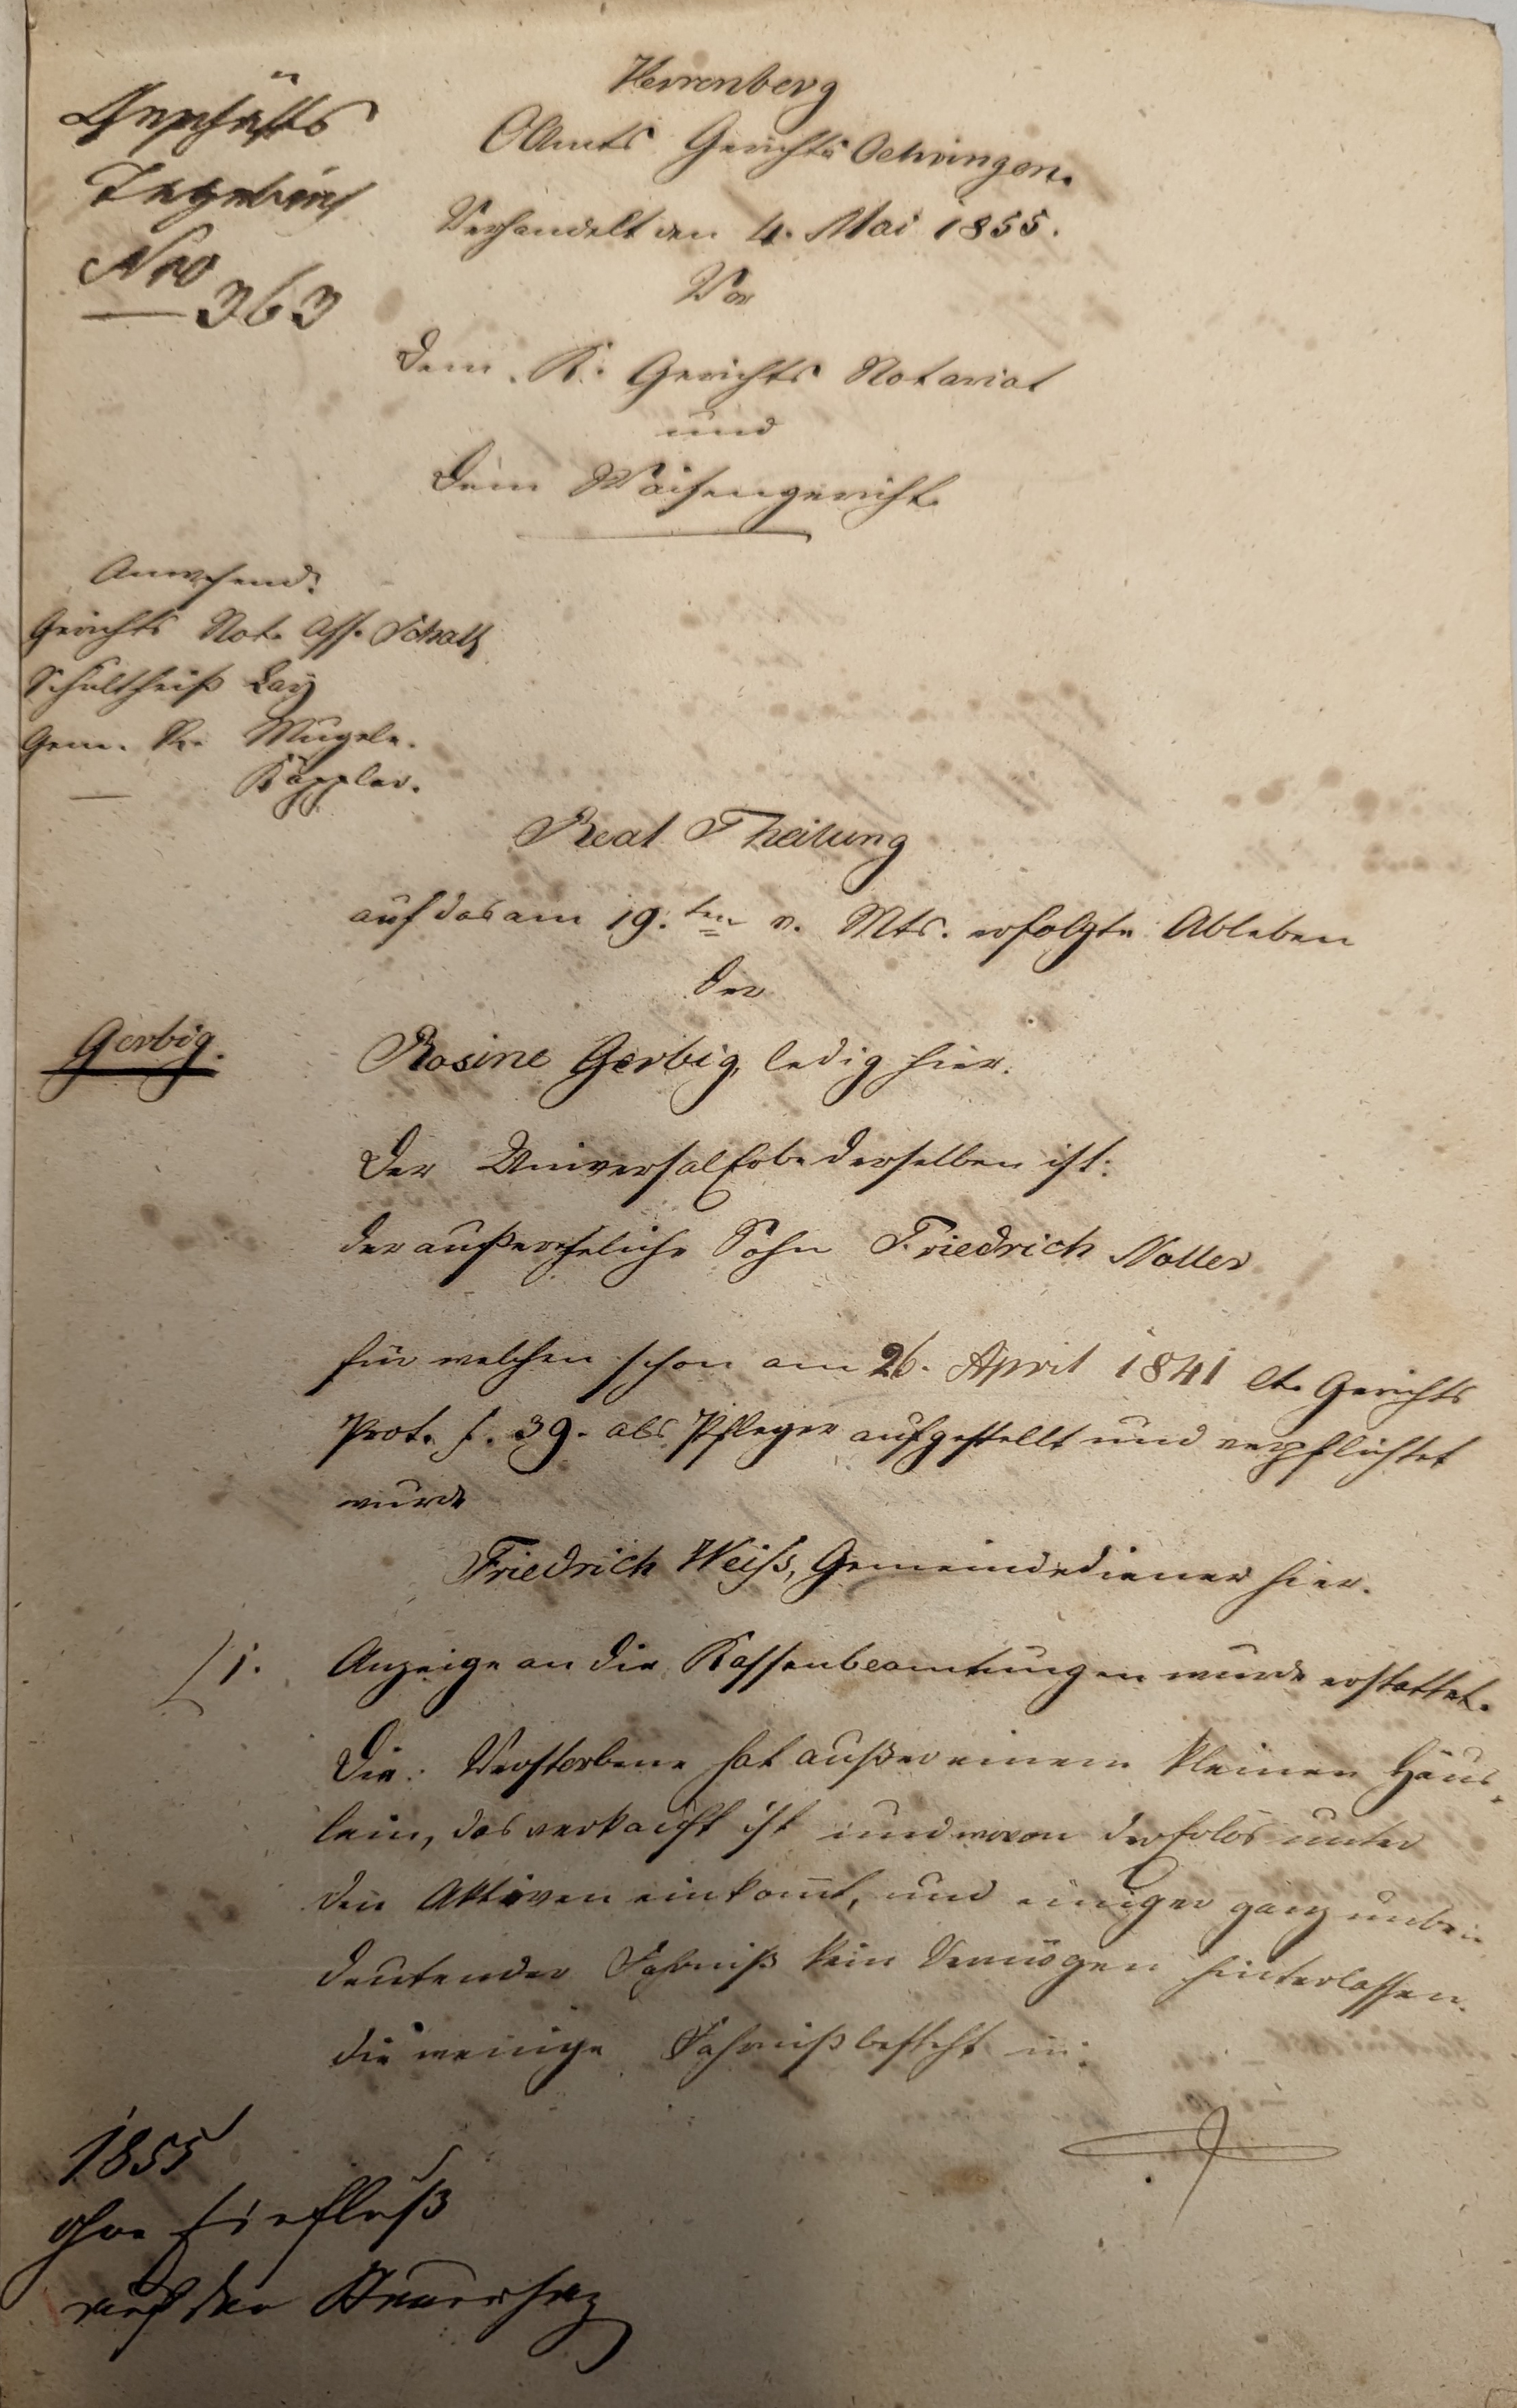 Geschäfts
Tagebuch
Nro 363
Herrenberg
OAmts Gerichts Oehringen.
Verhandelt den 4. Mai 1855.
Vor
dem K. Gerichts Notariat
und
dem Waisengericht.
Anwesend:
Gerichts Not. Ass.
Schultheiß Lay
Gem. R. Mugele.
Käppler.
Real Theilung
auf das am 19.ten v. Mts. erfolgte Ableben
der
Gerbig.
Rosine Gerbig, ledig hier.
Der UniversalErbe derselben ist:
der außereheliche Sohn Friedrich Noller
für welchen schon am 26. April 1841 lt. Gerichts
Prot. f. 39. als Pfleger aufgestellt und verpflichtet
wurde
Friedrich Weiß, Gemeindediener hier.
1. Anzeige an die Kassenbeamtungen wurde erstattet.
Die Verstorbene hat außer einem kleinen Häus-
lein, das verkauft ist und wovon der Erlös unter
den Aktiven einkomt, und einiger ganz unbe-
deutender Fahrniß kein Vermögen hinterlassen.
Die wenige Fahrniß besteht in:
1855
ohne Einfluß
auf den Steuersatz